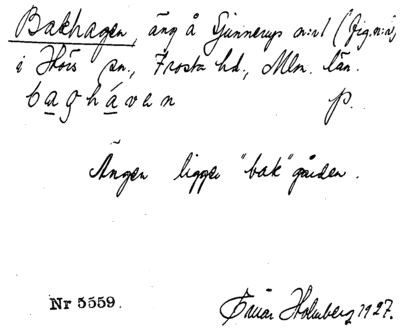 Bakhagen, äng å Sjunnerup n:r 1 (fig. n:r)
i Hörs sn., Frosta hd., Mlm. län.
bagháven p.
Ängen ligger "bak" gården.
Nr 5559. Einar Holmberg 1927.